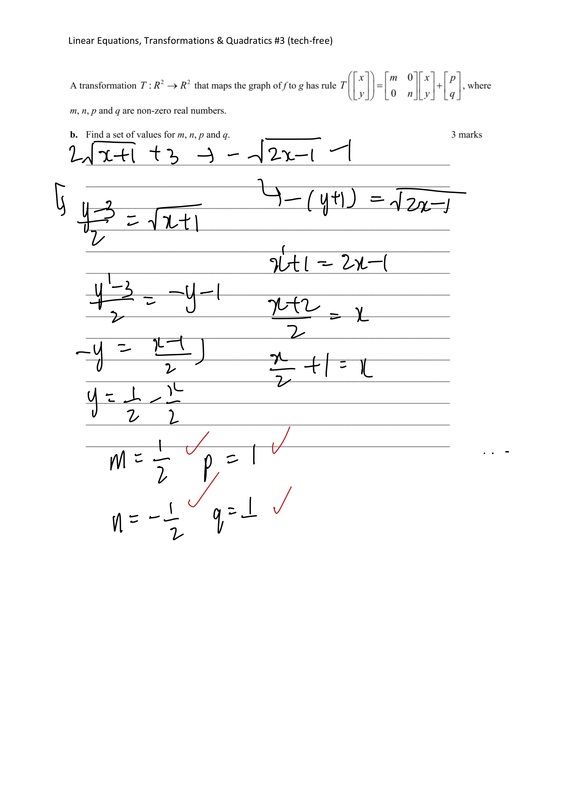 Linear Equations, Transformations & Quadratics #3 (tech-free)
A transformation T : R² → R² that maps the graph of f to g has rule T([x y]) = [m 0 0 n][x y] + [p q], where
m, n, p and q are non-zero real numbers.
b. Find a set of values for m, n, p and q. 3 marks
2√(x+1) + 3 → -√(2x-1) -1
(y-3)/2 = √(x+1)
↳ -(y+1) = √(2x-1)
(y'-3)/2 = -y-1
-y = (x-1)/2
y = 1/2 - x/2
x'+1 = 2x-1
(x+2)/2 = x
x/2 + 1 = x
m = 1/2 ✓ p = 1 ✓
n = -1/2 ✓ q = 1 ✓